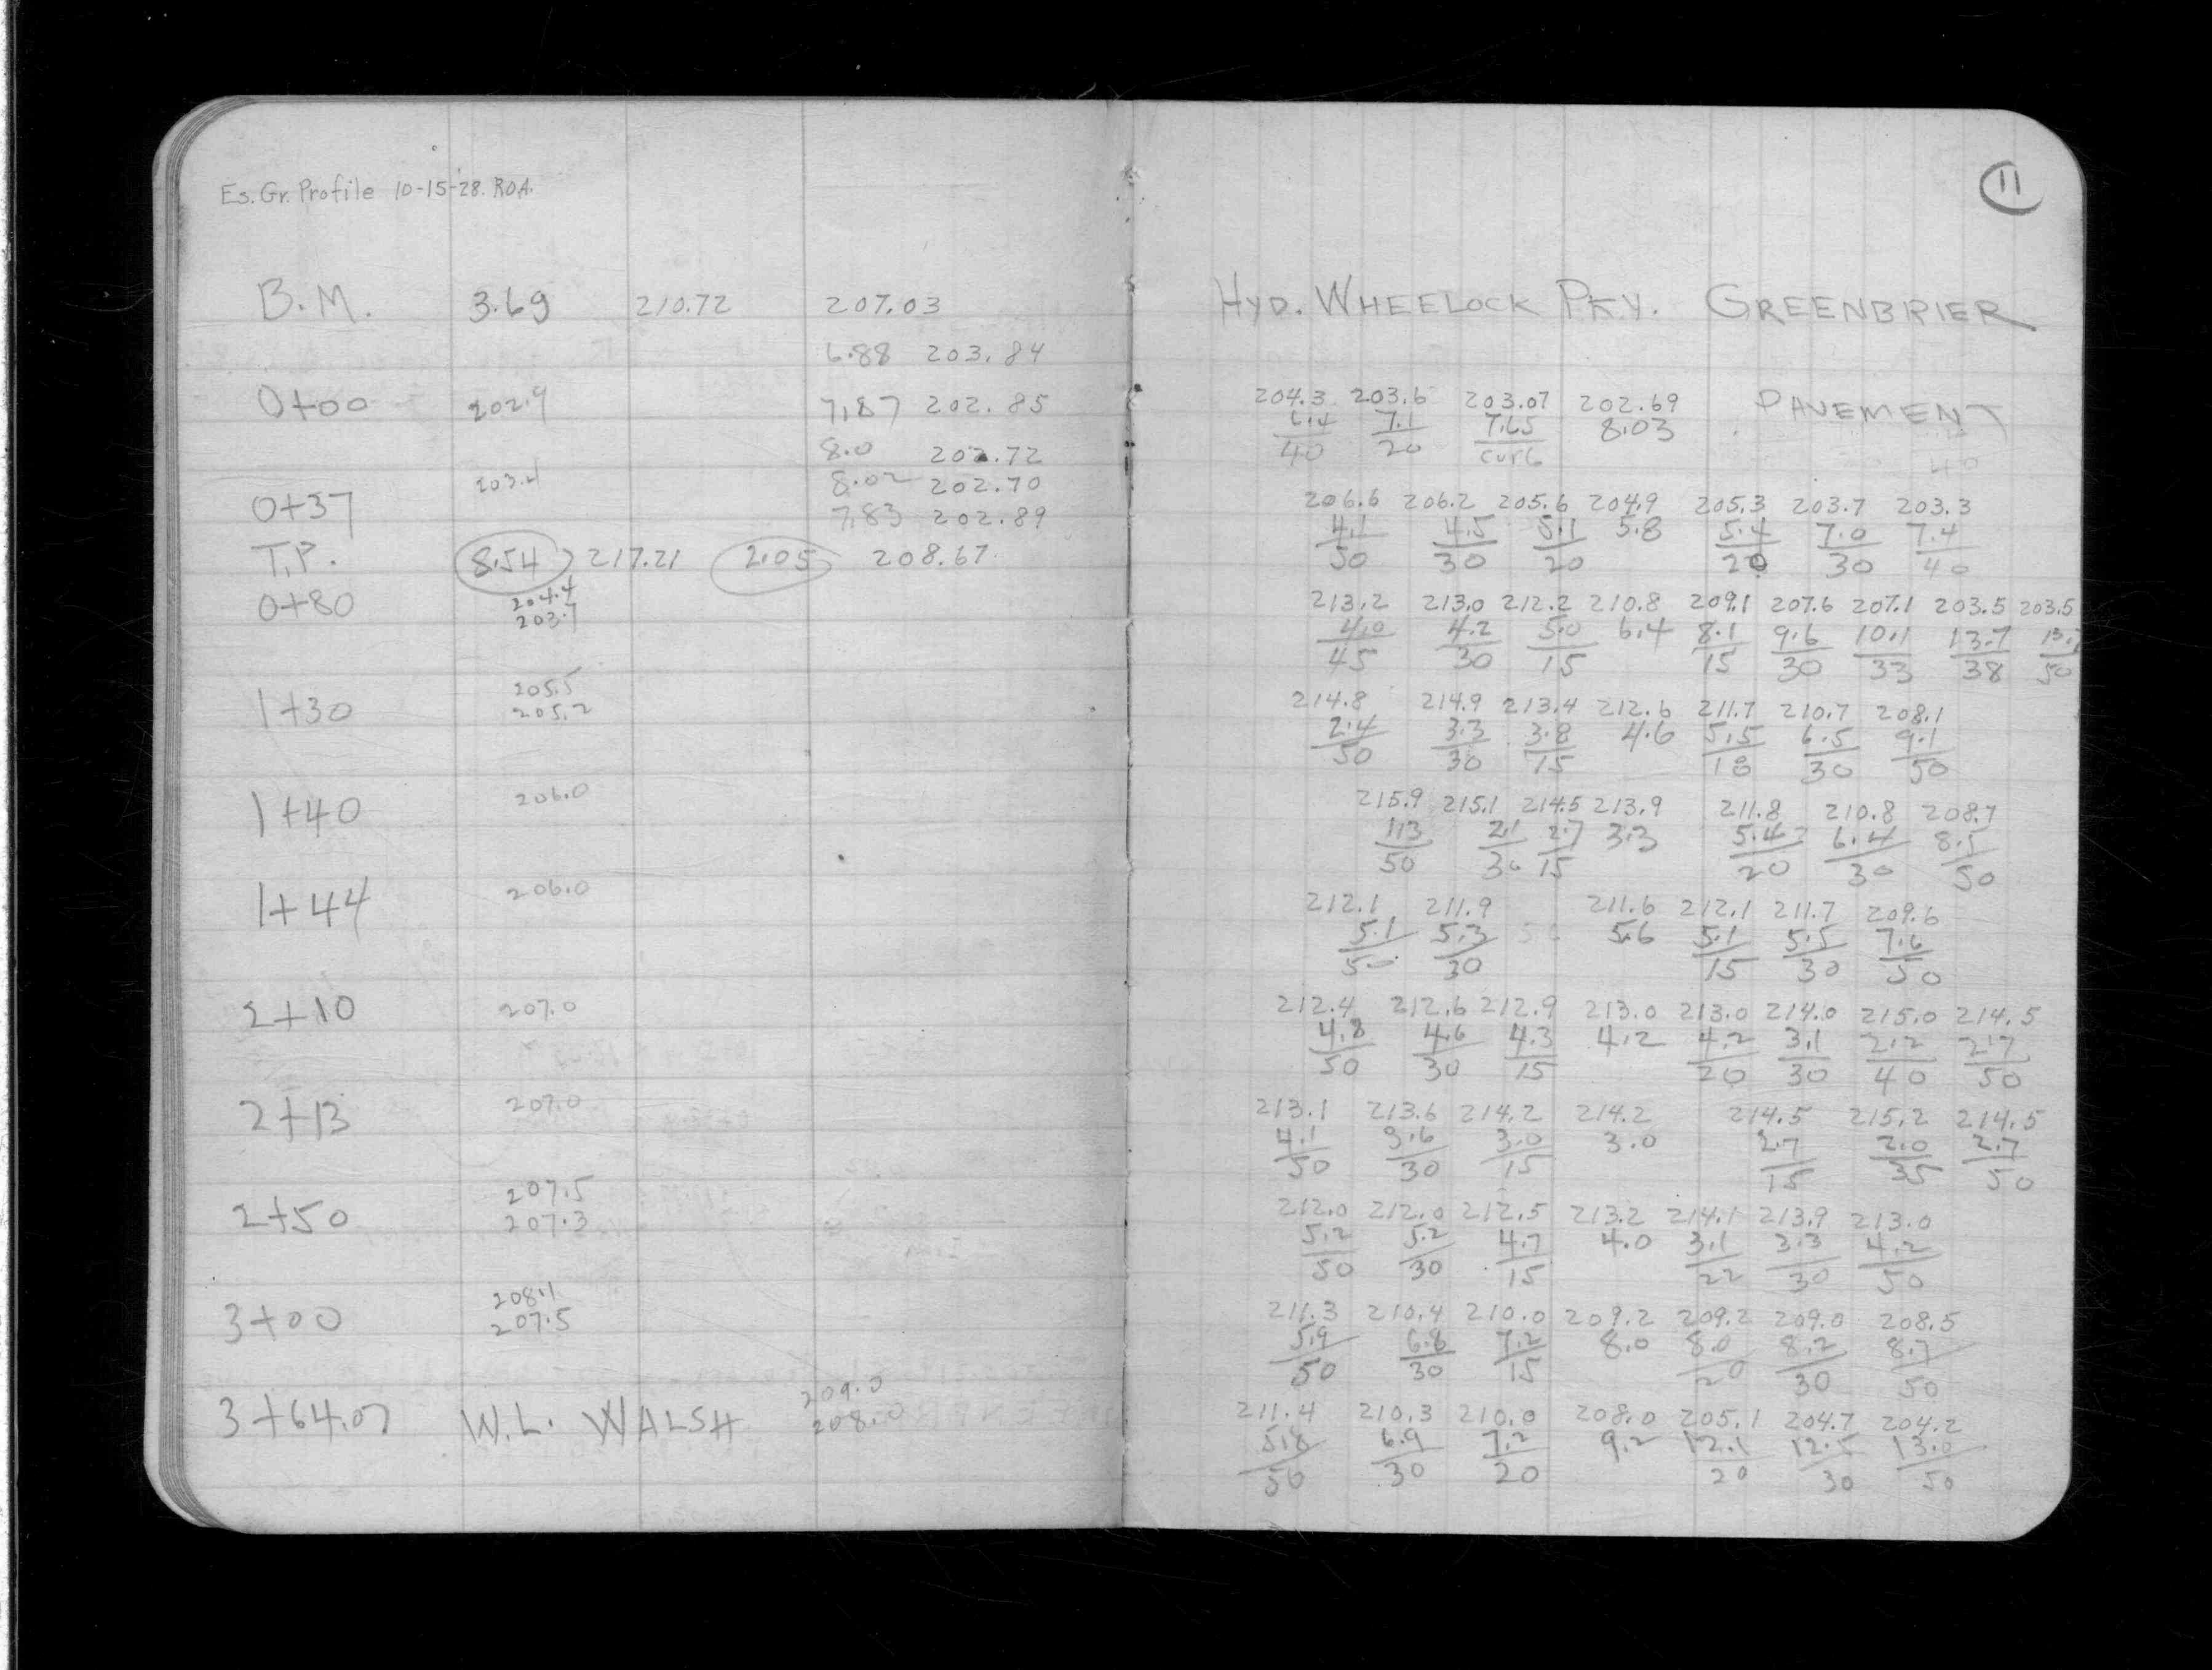 Es. Gr. Profile 10-15-28. R.O.A.
B.M. 3.69 210.72 207.03
6.88 203.84
0+00 202.9 7.87 202.85
8.0 202.72
203.4 8.02 202.70
0+37 7.83 202.89
T.P. 8.54 217.21 2.05 208.67
0+80 204.4
203.7
205.5
1+30 205.2
1+40 206.0
1+44 206.0
2+10 207.0
2+13 207.0
207.5
2+50 207.3
208.1
3+00 207.5
209.0
3+64.07 W.L. WALSH 208.0
11
HYD. WHEELOCK PKY. GREENBRIER
204.3 203.6 203.07 202.69 PAVEMENT
6.4 7.1 7.65 8.03
40 20 curb 40
206.6 206.2 205.6 204.9 205.3 203.7 203.3
4.1 4.5 5.1 5.8 5.4 7.0 7.4
50 30 20 20 30 40
213.2 213.0 212.2 210.8 209.1 207.6 207.1 203.5 203.5
4.0 4.2 5.0 6.4 8.1 9.6 10.1 13.7
45 30 15 15 30 33 38 50
214.8 214.9 213.4 212.6 211.7 210.7 208.1
2.4 3.3 3.8 4.6 5.5 6.5 9.1
50 30 15 18 30 50
215.9 215.1 214.5 213.9 211.8 210.8 208.7
1.3 2.1 2.7 3.3 5.4 6.4 8.5
50 30 15 20 30 50
212.1 211.9 211.6 212.1 211.7 209.6
5.1 5.3 5.6 5.1 5.5 7.6
50 30 15 30 50
212.4 212.6 212.9 213.0 213.0 214.0 215.0 214.5
4.8 4.6 4.3 4.2 4.2 3.1 2.2 2.7
50 30 15 20 30 40 50
213.1 213.6 214.2 214.2 214.5 215.2 214.5
4.1 3.6 3.0 3.0 2.7 2.0 2.7
50 30 15 15 35 50
212.0 212.0 212.5 213.2 214.1 213.9 213.0
5.2 5.2 4.7 4.0 3.1 3.3 4.2
50 30 15 22 30 50
211.3 210.4 210.0 209.2 209.2 209.0 208.5
5.9 6.8 7.2 8.0 8.0 8.2 8.7
50 30 15 20 30 50
211.4 210.3 210.0 208.0 205.1 204.7 204.2
5.8 6.9 7.2 9.2 12.1 12.5 13.0
50 30 20 20 30 50